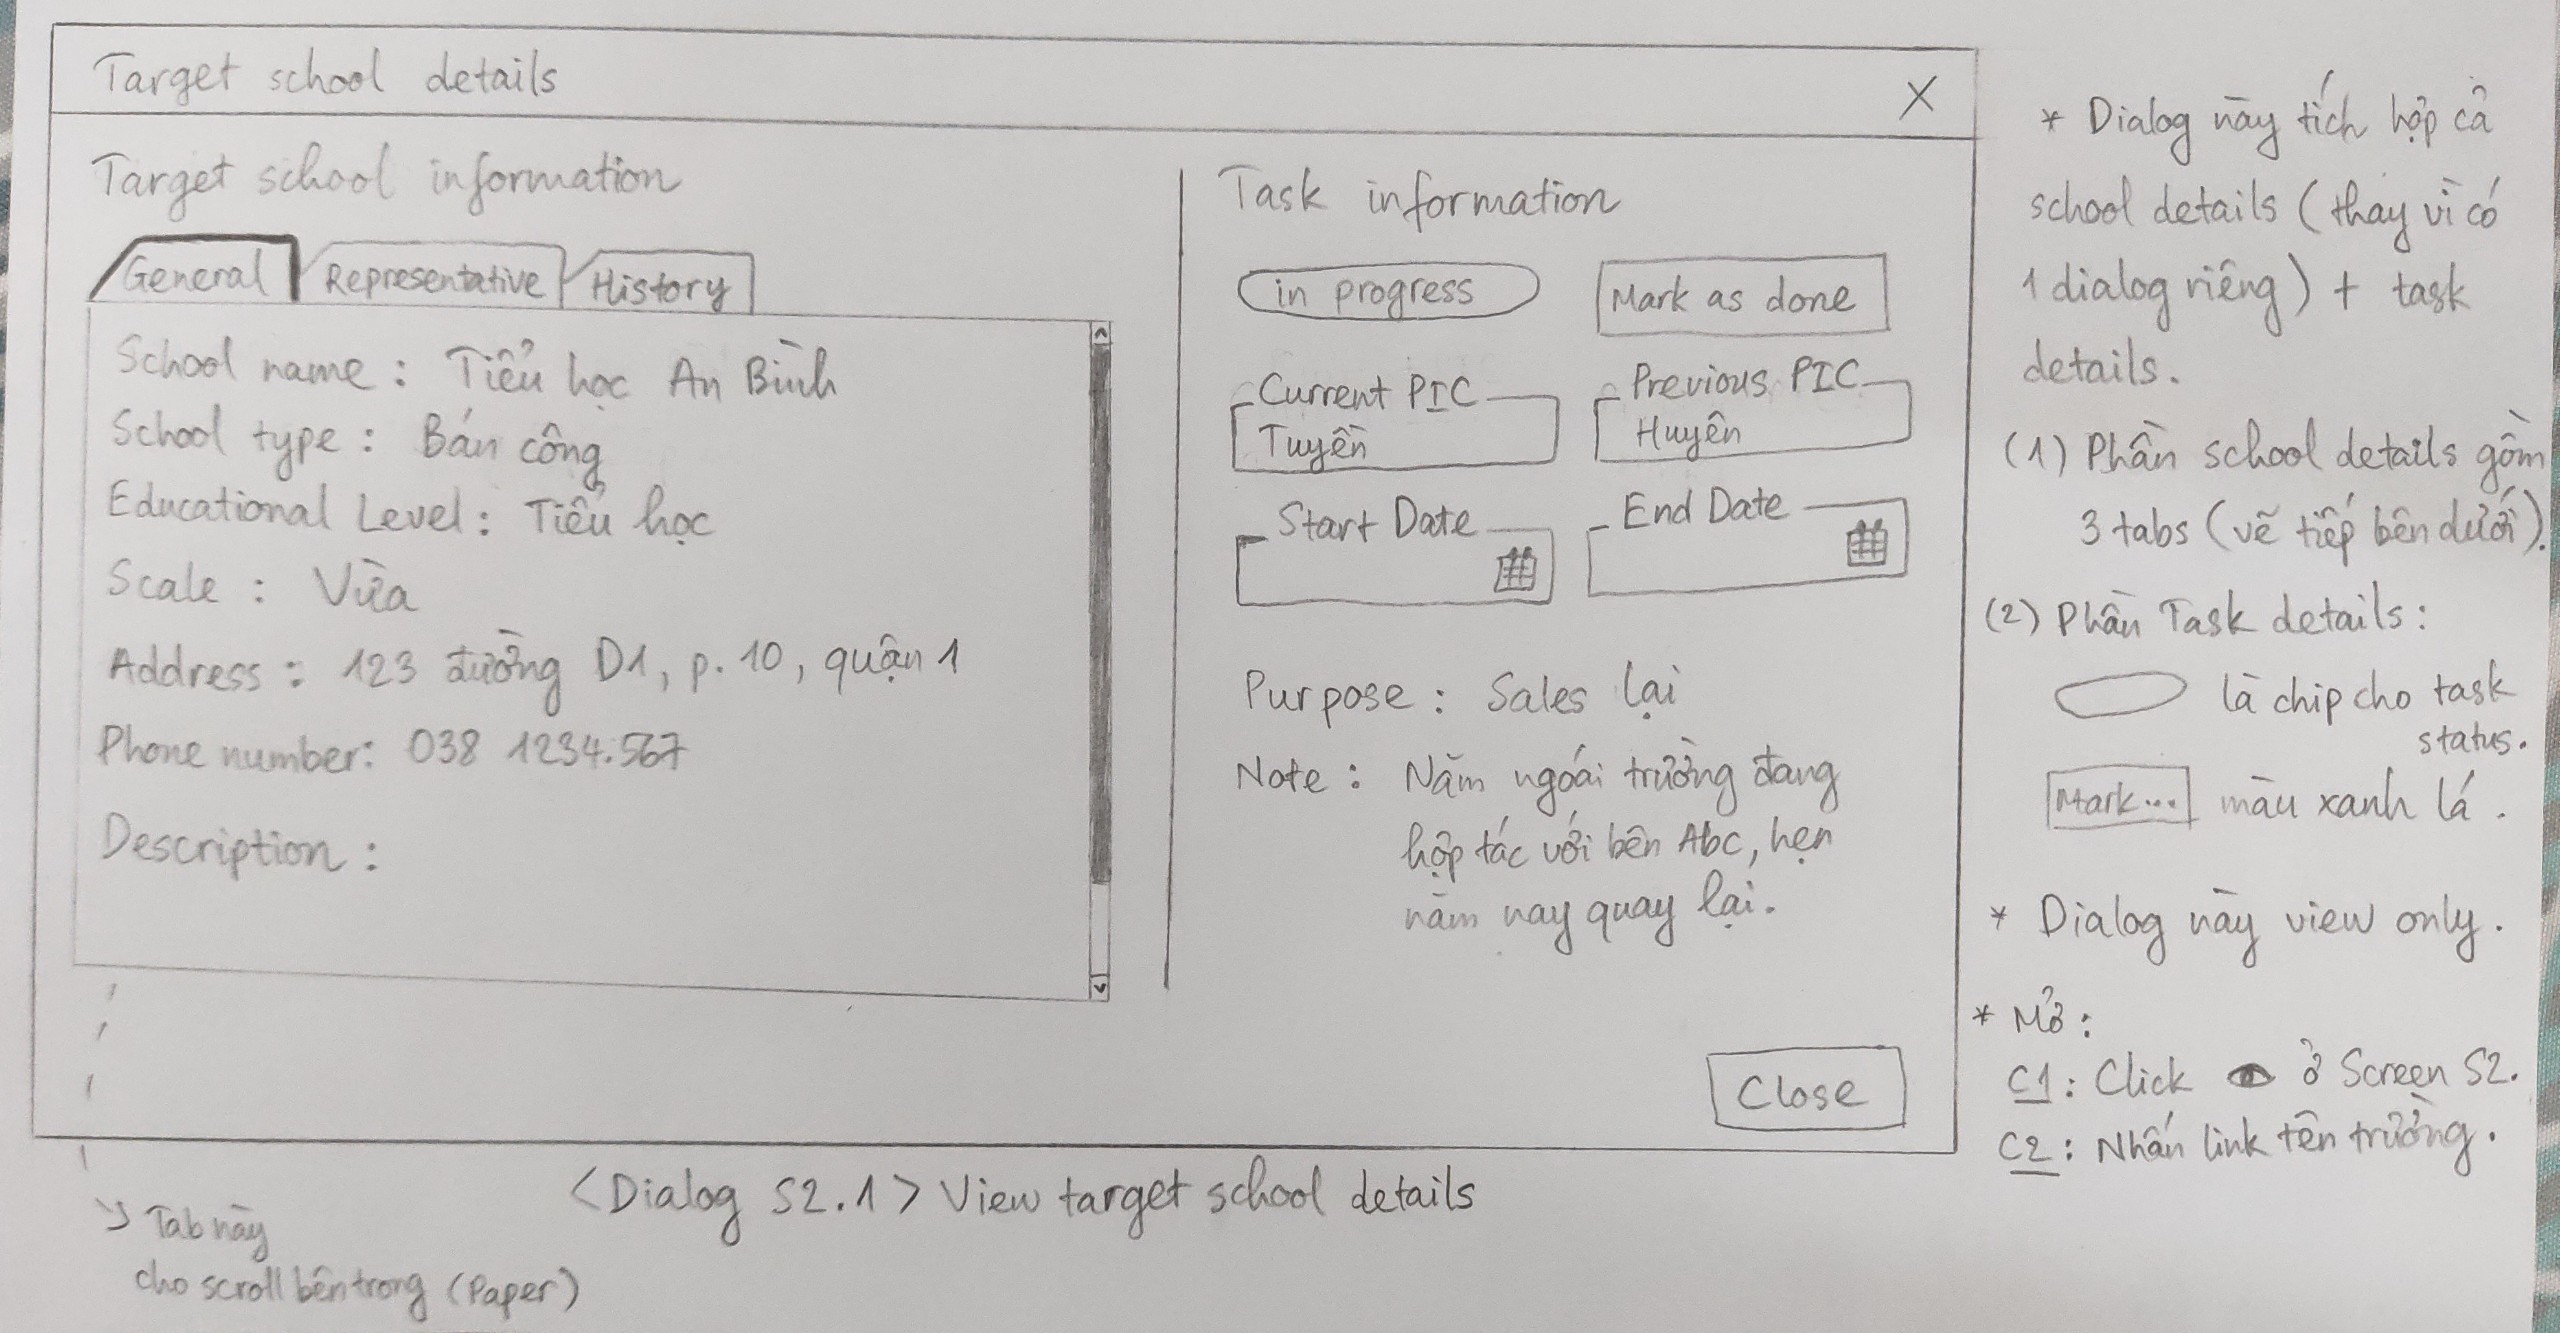 Target school details
X
Target school information
General
Representative
History
School name : Tiểu học An Bình
School type : Bán công
Educational Level : Tiểu học
Scale : Vừa
Address : 123 đường D1, p. 10, quận 1
Phone number: 038 1234.567
Description :
Task information
in progress
Mark as done
Current PIC
Tuyền
Previous PIC
Huyên
Start Date
End Date
Purpose : Sales lại
Note : Năm ngoái trường đang
hợp tác với bên Abc, hẹn
năm nay quay lại.
Close
<Dialog S2.1> View target school details
Tab này
cho scroll bên trong (Paper)
* Dialog này tích hợp cả
school details (thay vì có
1 dialog riêng) + task
details.
(1) Phần school details gồm
3 tabs (vẽ tiếp bên dưới).
(2) Phần Task details :
là chip cho task
status.
Mark... màu xanh lá .
* Dialog này view only .
* Mở :
C1 : Click ở Screen S2.
C2 : Nhấn link tên trường .